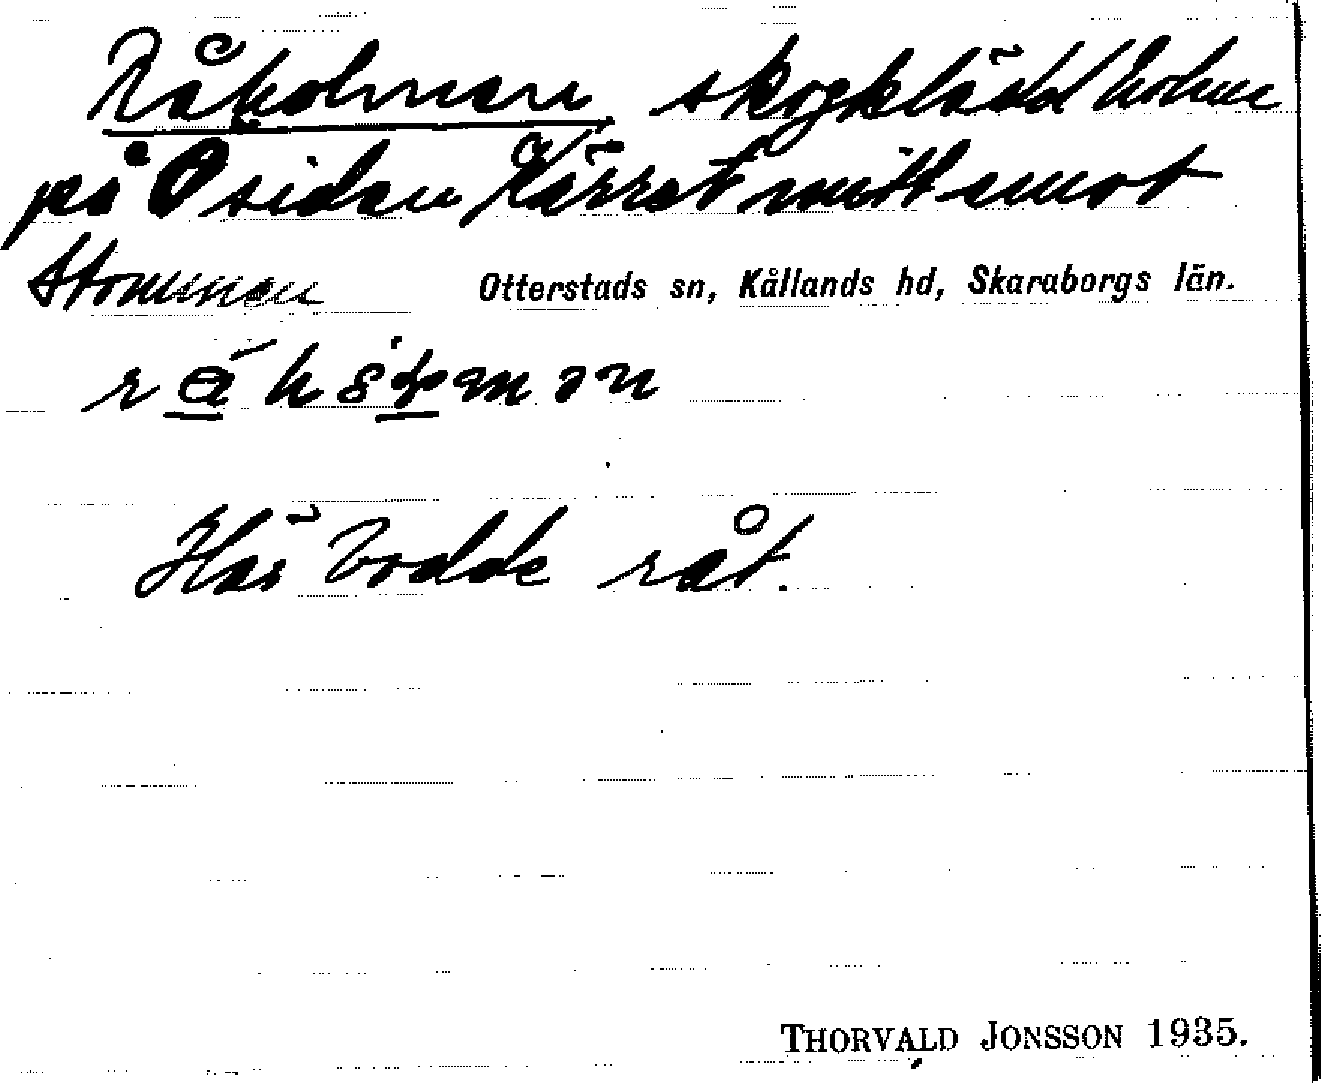 Råholmen skogklädd holme
på O sidan Kärret mitt emot
Stommen Otterstads sn, Kållands hd, Skaraborgs län.
Här bodde råt.
THORVALD JONSSON 1935.